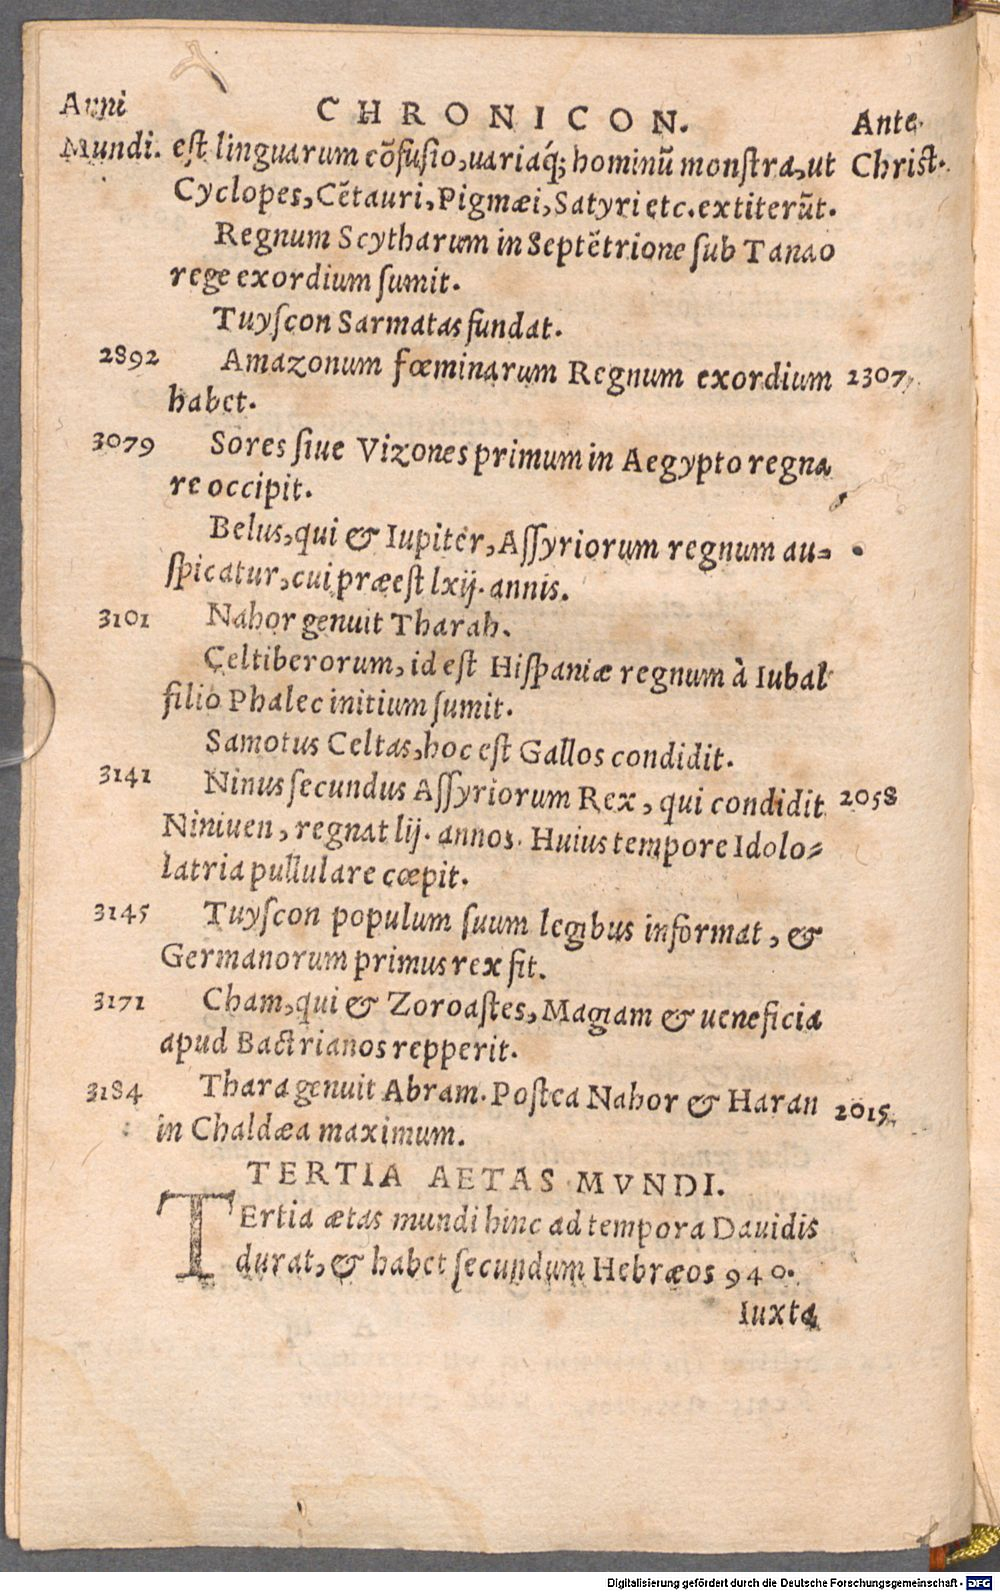 Anni CHRONICON. Ante
Mundi. est linguarum cõfusio, uariaq́; hominũ monstra, ut Christ.
Cyclopes, Cẽtauri, Pigmæi, Satyri etc. extiterũt.
Regnum Scytharum in Septẽtrione sub Tanao
rege exordium sumit.
Tuyscon Sarmatas fundat.
2892 Amazonum fœminarum Regnum exordium 2307
habet.
3079 Sores siue Vizones primum in Aegypto regna
re occipit.
Belus, qui & Iupiter, Assyriorum regnum au=
spicatur, cui præest lxij. annis.
3101 Nahor genuit Tharah.
Celtiberorum, id est Hispaniæ regnum à Iubal
filio Phalec initium sumit.
Samotus Celtas, hoc est Gallos condidit.
3141 Ninus secundus Assyriorum Rex, qui condidit 2058
Niniuen, regnat lij. annos. Huius tempore Idolo=
latria pullulare cœpit.
3145 Tuyscon populum suum legibus informat, &
Germanorum primus rex fit.
3171 Cham, qui & Zoroastes, Magiam & ueneficia
apud Bactrianos repperit.
3184 Thara genuit Abram. Postea Nahor & Haran 2015
in Chaldæa maximum.
TERTIA AETAS MVNDI.
TErtia ætas mundi hinc ad tempora Dauidis
durat, & habet secundum Hebræos 940.
Iuxta
Digitalisierung gefördert durch die Deutsche Forschungsgemeinschaft - DFG